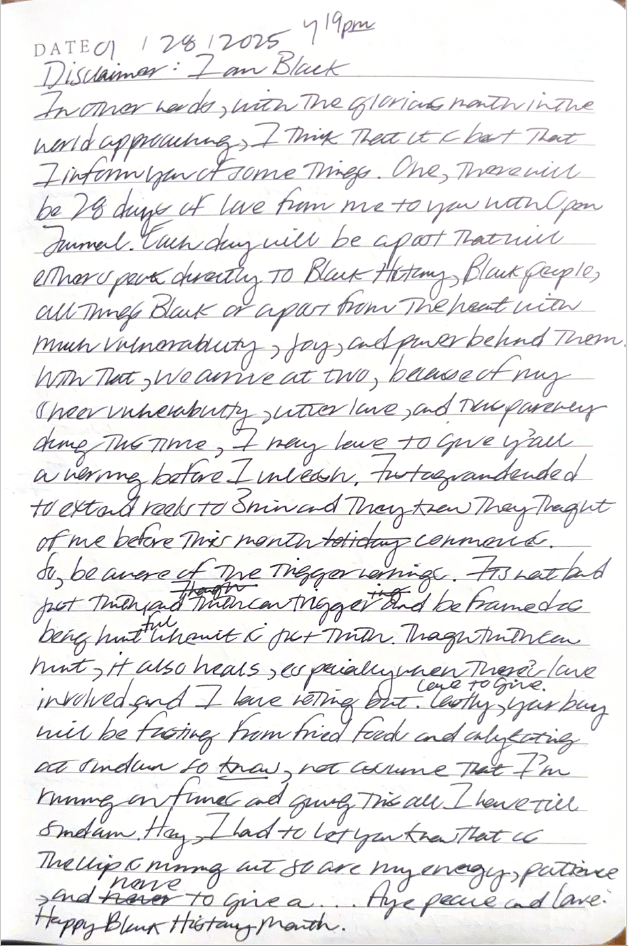 DATE 01 / 28 / 2025 719pm
Disclaimer: I am Black
In other words, with the glorious month in the
world approaching, I think that it is best that
I inform you of some things. One, there will
be 28 days of love from me to you with Open
Journal. Each day will be a post that will
either speak directly to Black History, Black people,
all things Black or a part from the heart with
much vulnerability, joy, and power behind them.
With that, we arrive at two, because of my
sheer vulnerability, utter love, and transparency
during this time, I may have to give y'all
a warning before I unleash. Instagram ended
to extend reels to 3min and they knew they thought
of me before this month holiday commence.
So, be aware of the trigger warnings. It's not bad
just truth, and though truth can trigger and be framed as
being hurtful when it is just truth. Though truth can
hurt, it also heals, especially when there's love
involved, and I have nothing but love to give. Lastly, your boy
will be fasting from fried foods and only eating
at so know, not assume that I'm
running on fumes and giving this all I have till
Hey, I had to let you know that as
the clip is running out so are my energy, patience
, and never none to give a.... Aye peace and love.
Happy Black History Month.